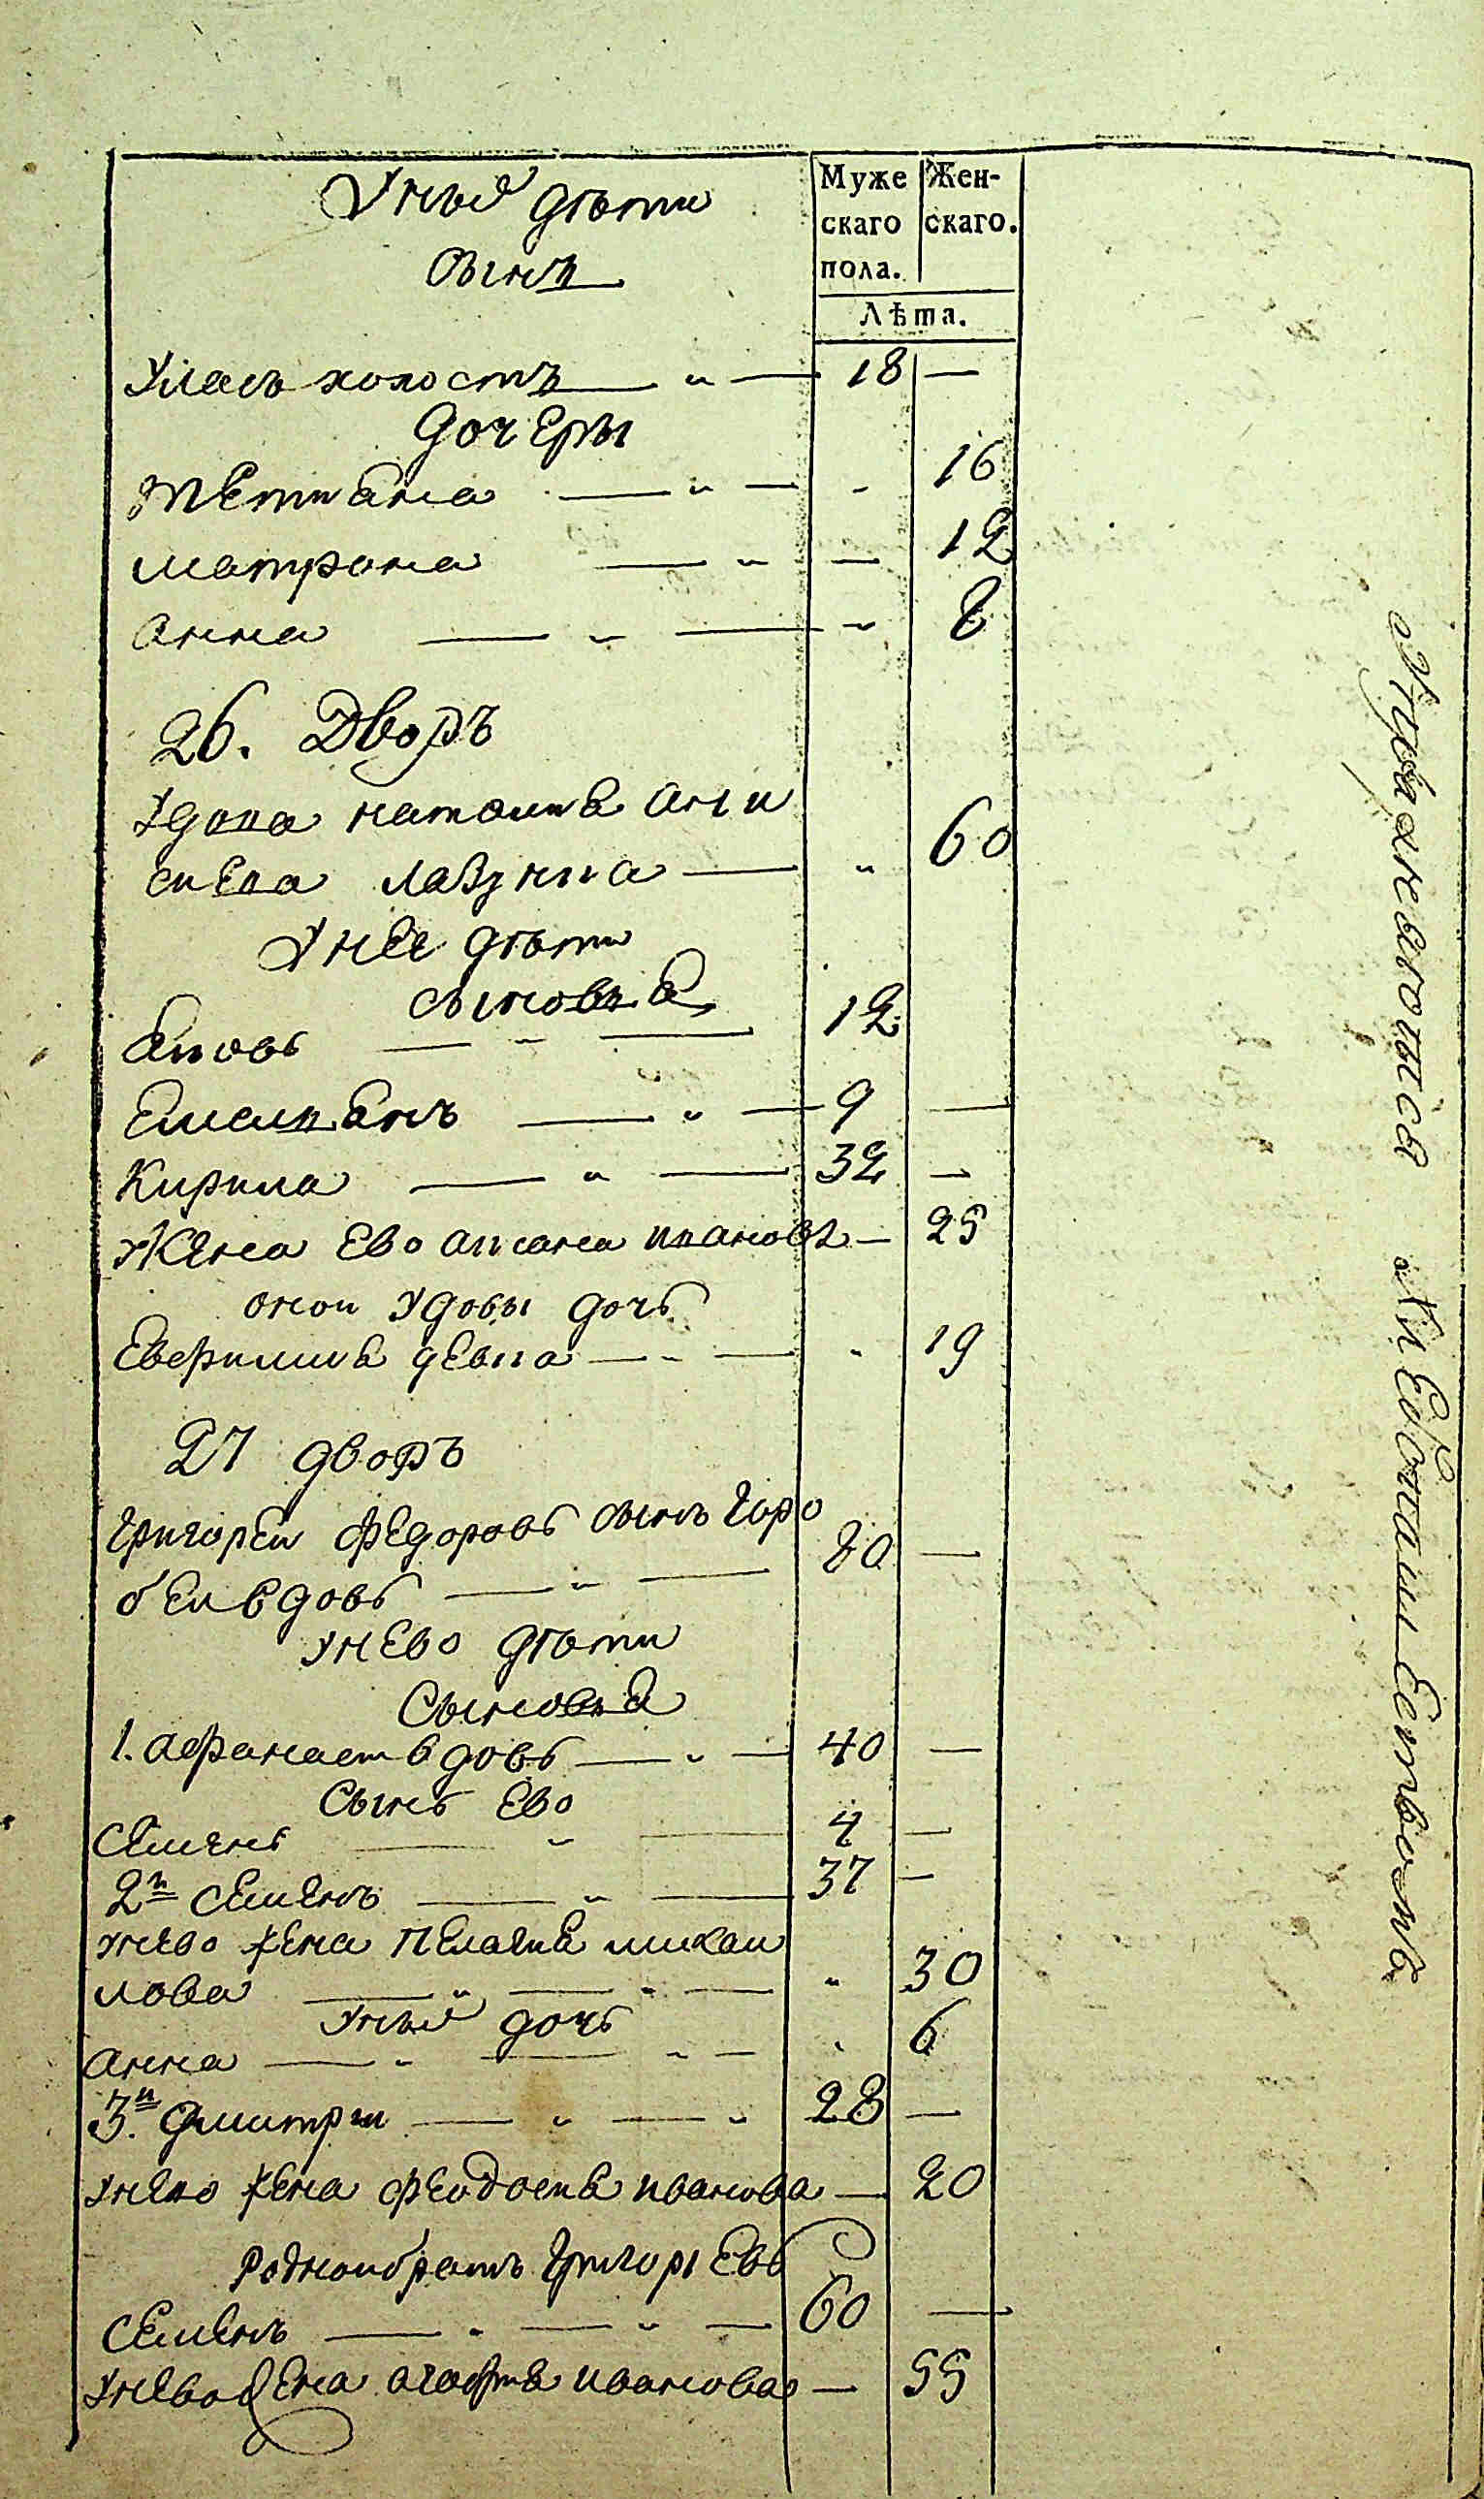 У них дѣти
Муже
скаго
пола.
Жен-
скаго.
сынъ
Лѣта.
холостъ 18 —
дочеры
тетиана 16
матрона — 12
анна 8
26. Дворъ
удова наталиа ани
сиева лазунка 60
У нее дѣти
сыновья
Яковъ 12
Емельянъ 9 —
Кирила 32 —
Жена ево аксана ивановъ — 25
оной удовы дочъ
девка 19
27 дворъ
григореи федоровъ сынъ горо
беи вдовъ 80 —
у нево дѣти
Сыновья
1. афанасеи вдовъ 40 —
Сынъ ево
Семенъ 4 —
2й Семенъ 37 —
у нево жена Пелагиа михаи
лова 30
У них дочъ
анна 6
3й дмитри 28 —
у нево жена феодосиа иванова — 20
Родной братъ григориевъ
Семенъ 60 —
у нево жена агафиа иванова — 55